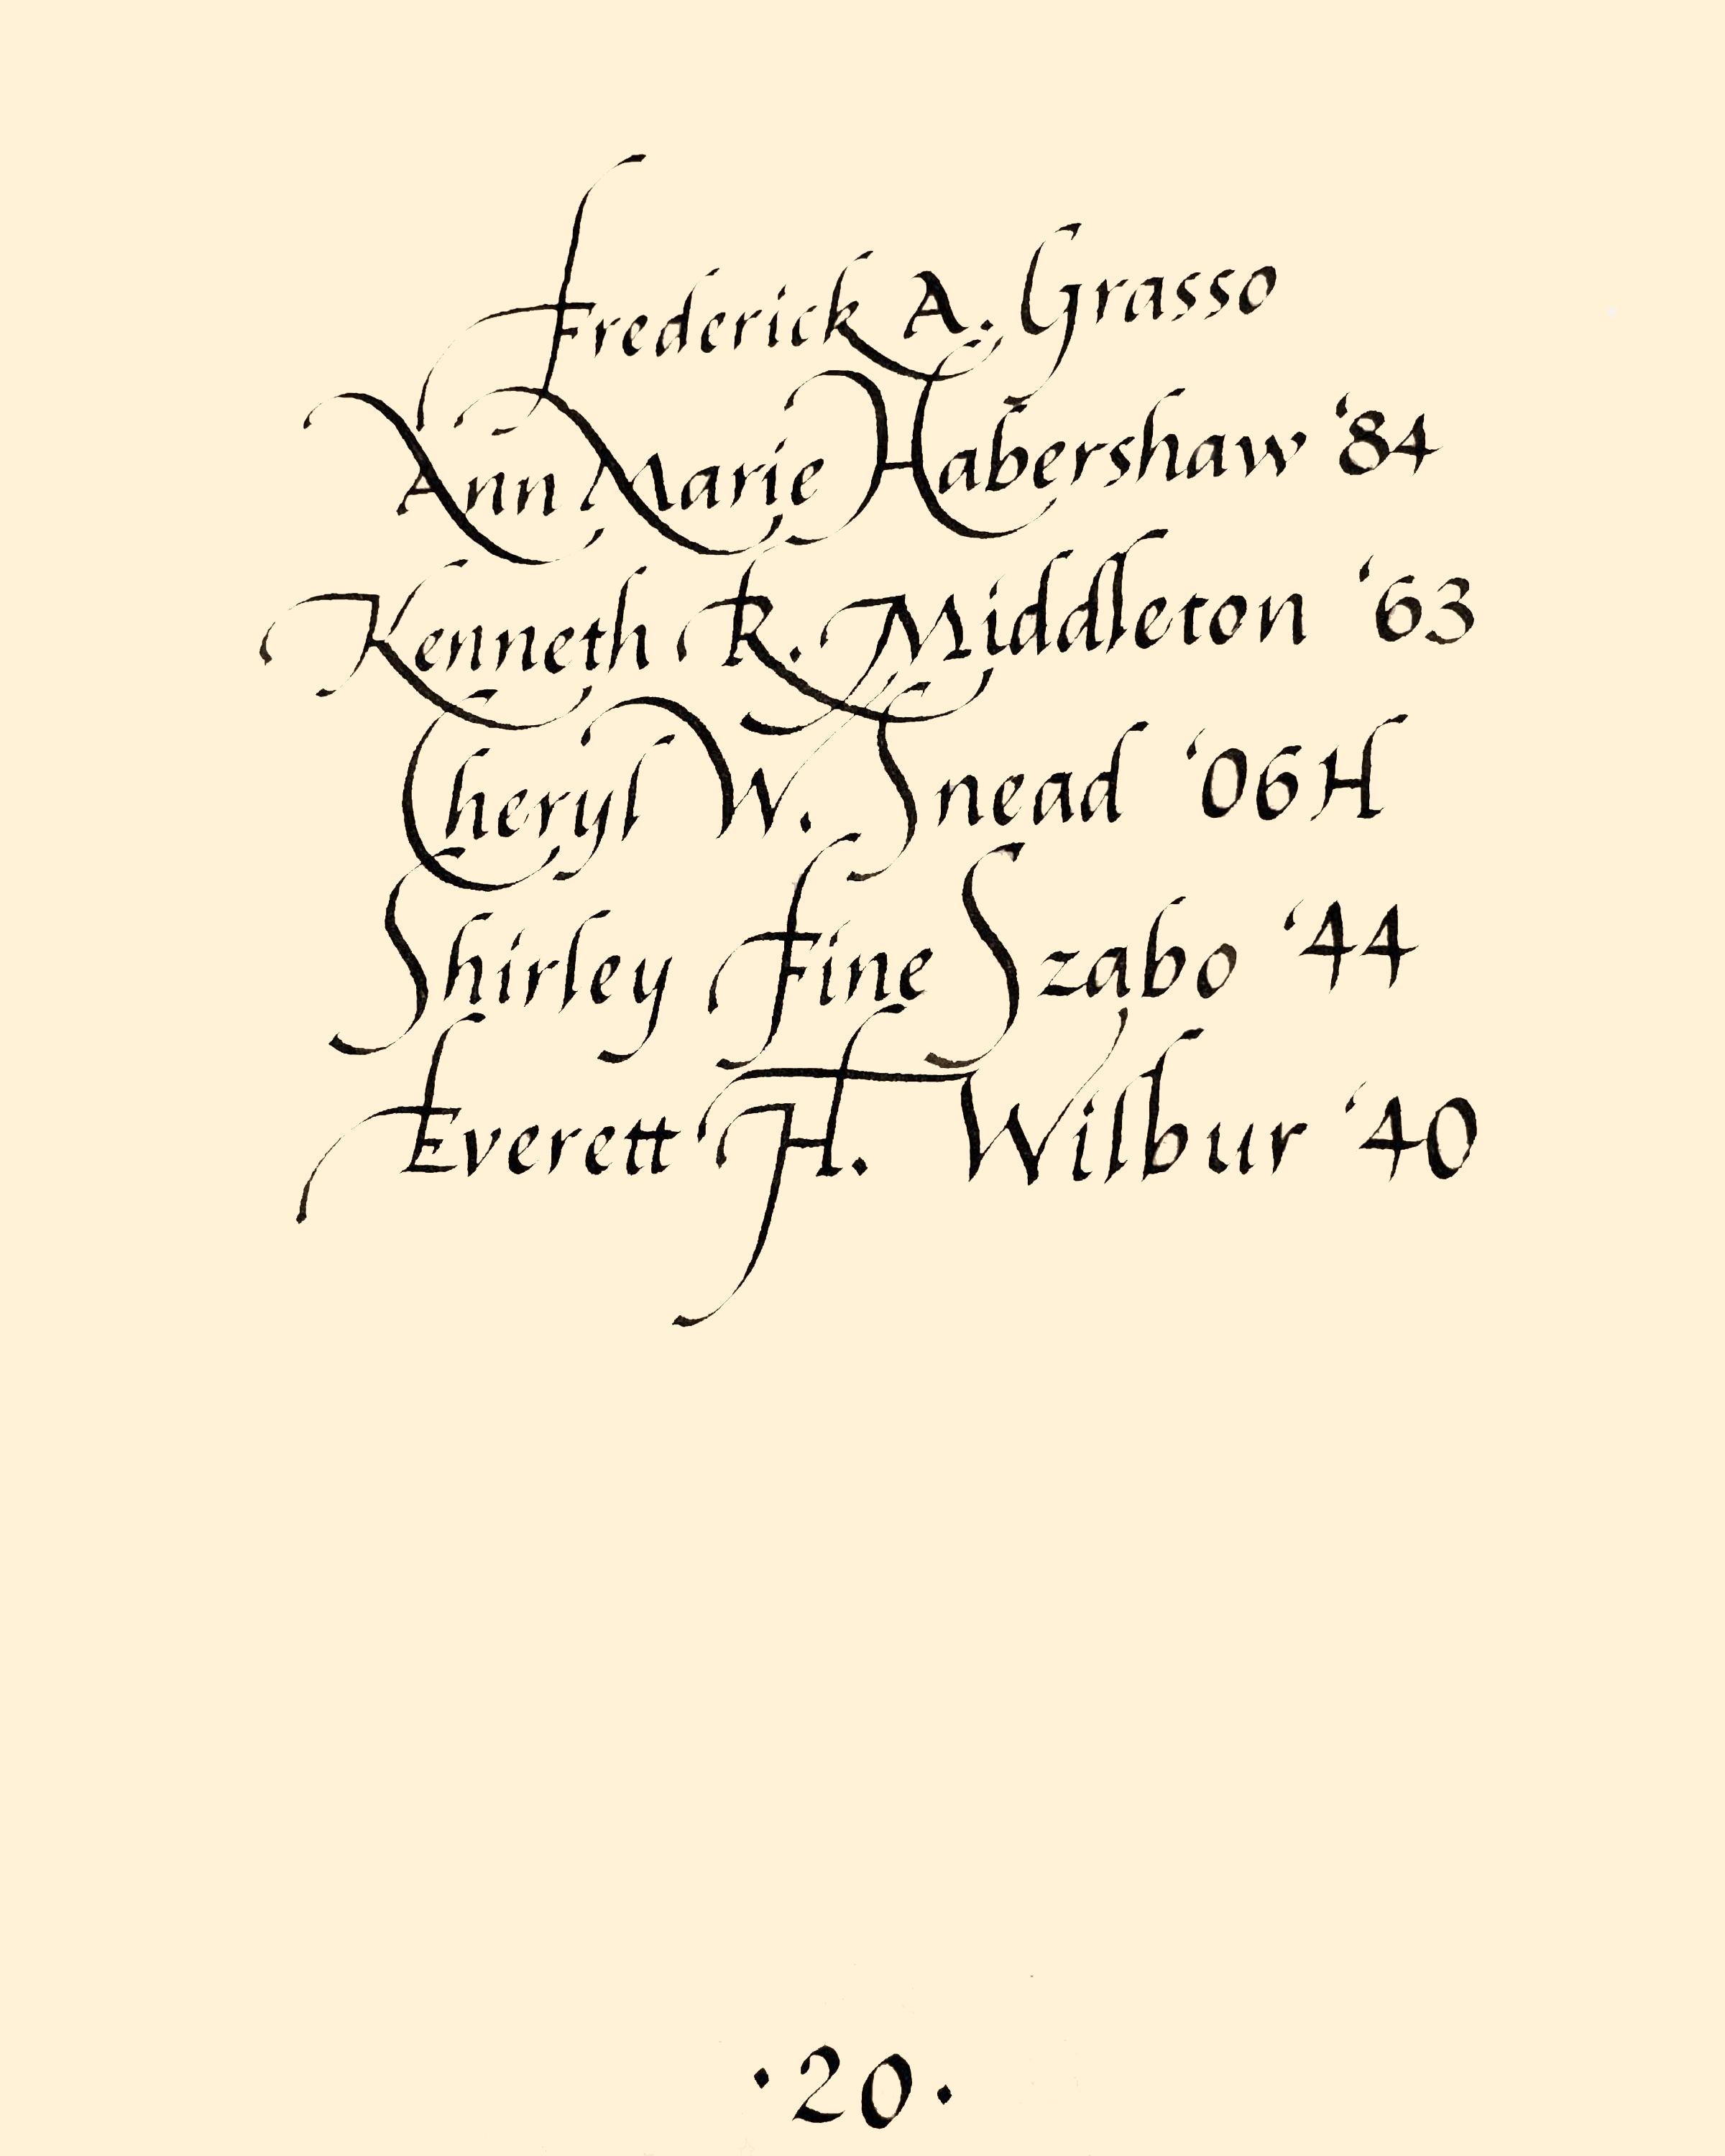 Frederick A. Grasso
Ann Marie Habershaw '84
Kenneth R. Middleton '63
Cheryl W. Snead '06H
Shirley Fine Szabo '44
Everett H. Wilbur '40
·20·